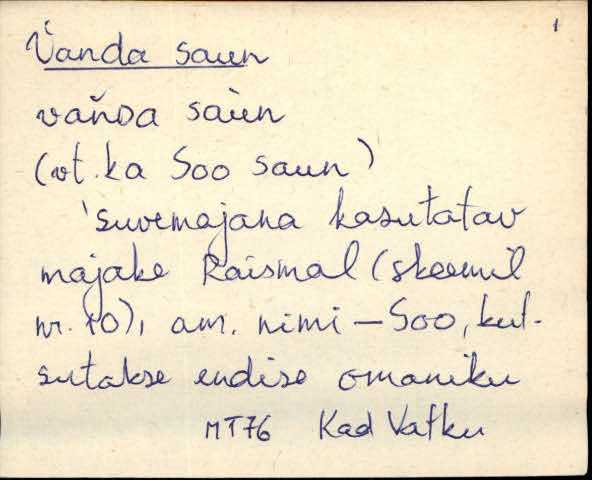 1
Vanda saun
vańda sàun
(vt. ka Soo saun)
'suvemajana kasutatav
majake Raismal (skeemil
nr. 10), am. nimi – Soo, kut-
sutakse endise omaniku
MT76 Kad Vatku